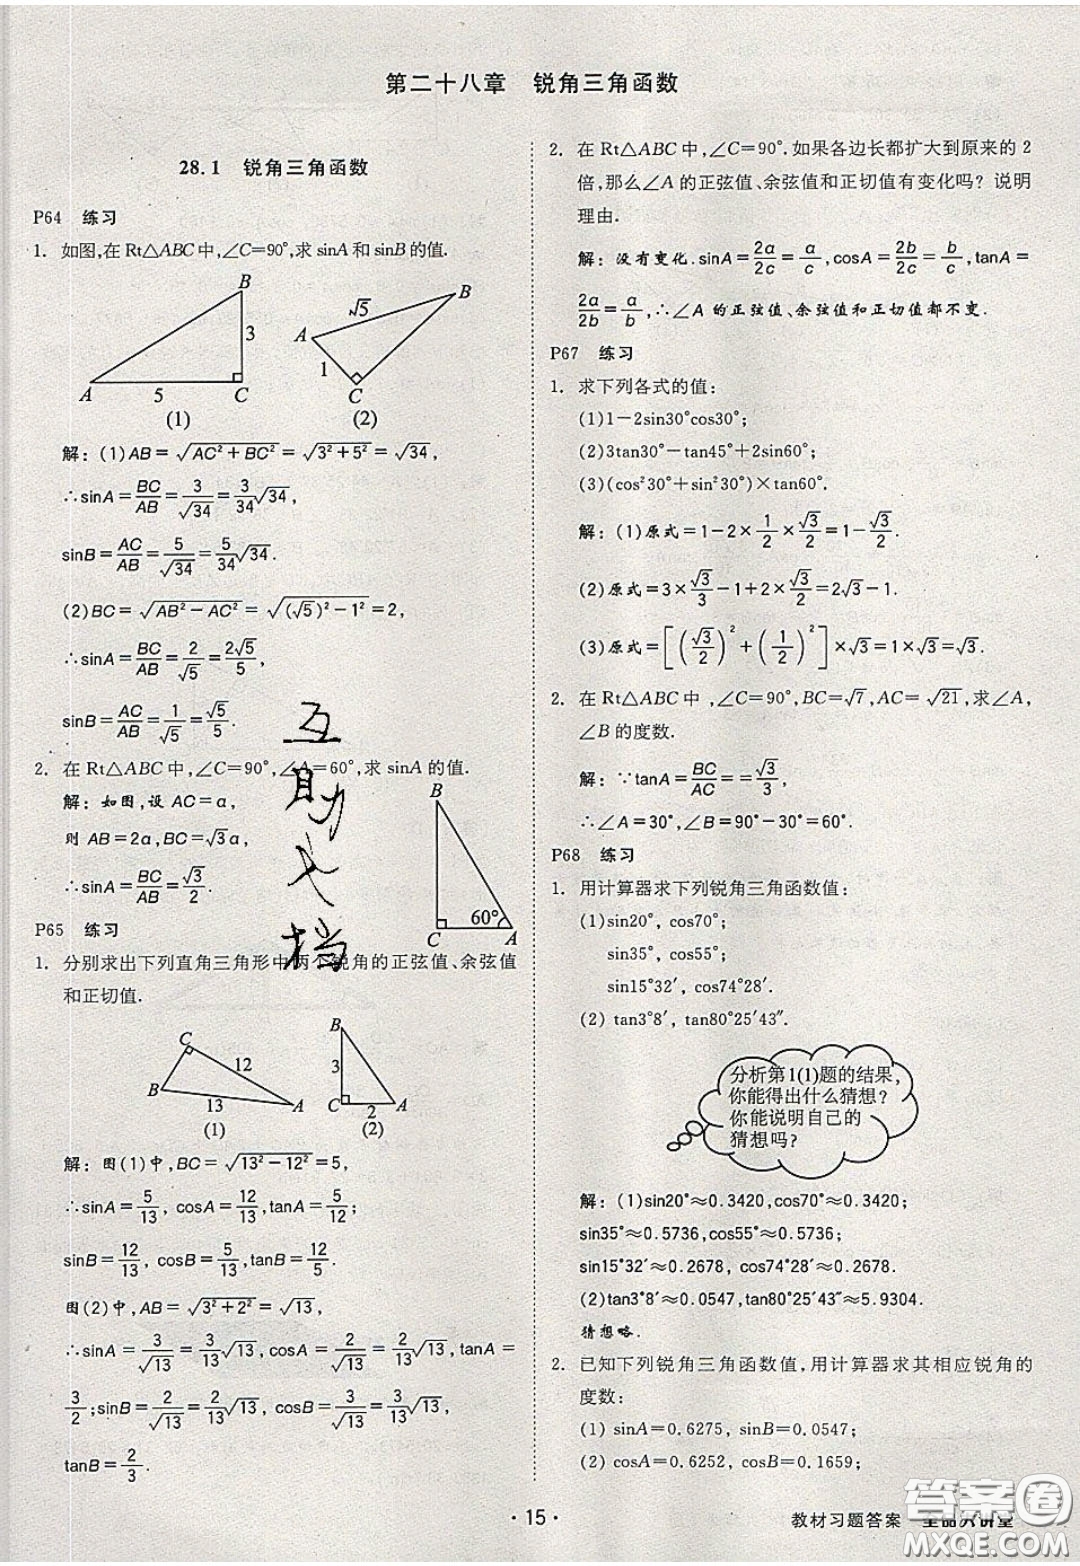 第二十八章 锐角三角函数
28.1 锐角三角函数
P64 练习
1. 如图,在Rt△ABC中,∠C=90°,求sinA和sinB的值.
B
3
A 5 C
(1)
B
√5
A
1
C
(2)
解:(1)AB=√(AC²+BC²)=√(3²+5²)=√34,
∴sinA=BC/AB=3/√34=3/34√34,
sinB=AC/AB=5/√34=5/34√34.
(2)BC=√(AB²-AC²)=√((√5)²-1²)=2,
∴sinA=BC/AB=2/√5=2√5/5,
sinB=AC/AB=1/√5=√5/5.
2. 在Rt△ABC中,∠C=90°,∠A=60°,求sinA的值.
解:如图,设AC=a,
则AB=2a,BC=√3a,
∴sinA=BC/AB=√3/2.
B
60°
C A
互
助
文
档
P65 练习
1. 分别求出下列直角三角形中两个锐角的正弦值、余弦值
和正切值.
C
12
B
13
A
(1)
B
3
C 2 A
(2)
解:图(1)中,BC=√(13²-12²)=5,
∴sinA=5/13,cosA=12/13,tanA=5/12;
sinB=12/13,cosB=5/13,tanB=12/5.
图(2)中,AB=√(3²+2²)=√13,
∴sinA=3/√13=3/13√13,cosA=2/√13=2/13√13,tanA=
3/2;sinB=2/√13=2/13√13,cosB=3/√13=3/13√13,
tanB=2/3.
2. 在Rt△ABC中,∠C=90°.如果各边长都扩大到原来的2
倍,那么∠A的正弦值、余弦值和正切值有变化吗?说明
理由.
解:没有变化.sinA=2a/2c=a/c,cosA=2b/2c=b/c,tanA=
2a/2b=a/b,∴∠A的正弦值、余弦值和正切值都不变.
P67 练习
1. 求下列各式的值:
(1)1-2sin30°cos30°;
(2)3tan30°-tan45°+2sin60°;
(3)(cos²30°+sin²30°)×tan60°.
解:(1)原式=1-2×1/2×√3/2=1-√3/2.
(2)原式=3×√3/3-1+2×√3/2=2√3-1.
(3)原式=[(√3/2)²+(1/2)²]×√3=1×√3=√3.
2. 在Rt△ABC中,∠C=90°,BC=√7,AC=√21,求∠A,
∠B的度数.
解:∵tanA=BC/AC=√3/3,
∴∠A=30°,∠B=90°-30°=60°.
P68 练习
1. 用计算器求下列锐角三角函数值:
(1)sin20°, cos70°;
sin35°, cos55°;
sin15°32′, cos74°28′;
(2) tan3°8′, tan80°25′43″.
分析第1(1)题的结果,
你能得出什么猜想?
你能说明自己的
猜想吗?
解:(1)sin20°≈0.3420,cos70°≈0.3420;
sin35°≈0.5736,cos55°≈0.5736;
sin15°32′≈0.2678,cos74°28′≈0.2678.
(2)tan3°8′≈0.0547,tan80°25′43″≈5.9304.
猜想略.
2. 已知下列锐角三角函数值,用计算器求其相应锐角的
度数:
(1) sinA=0.6275, sinB=0.0547;
(2) cosA=0.6252, cosB=0.1659;
·15·
教材习题答案
答案圈
MXQE.COM